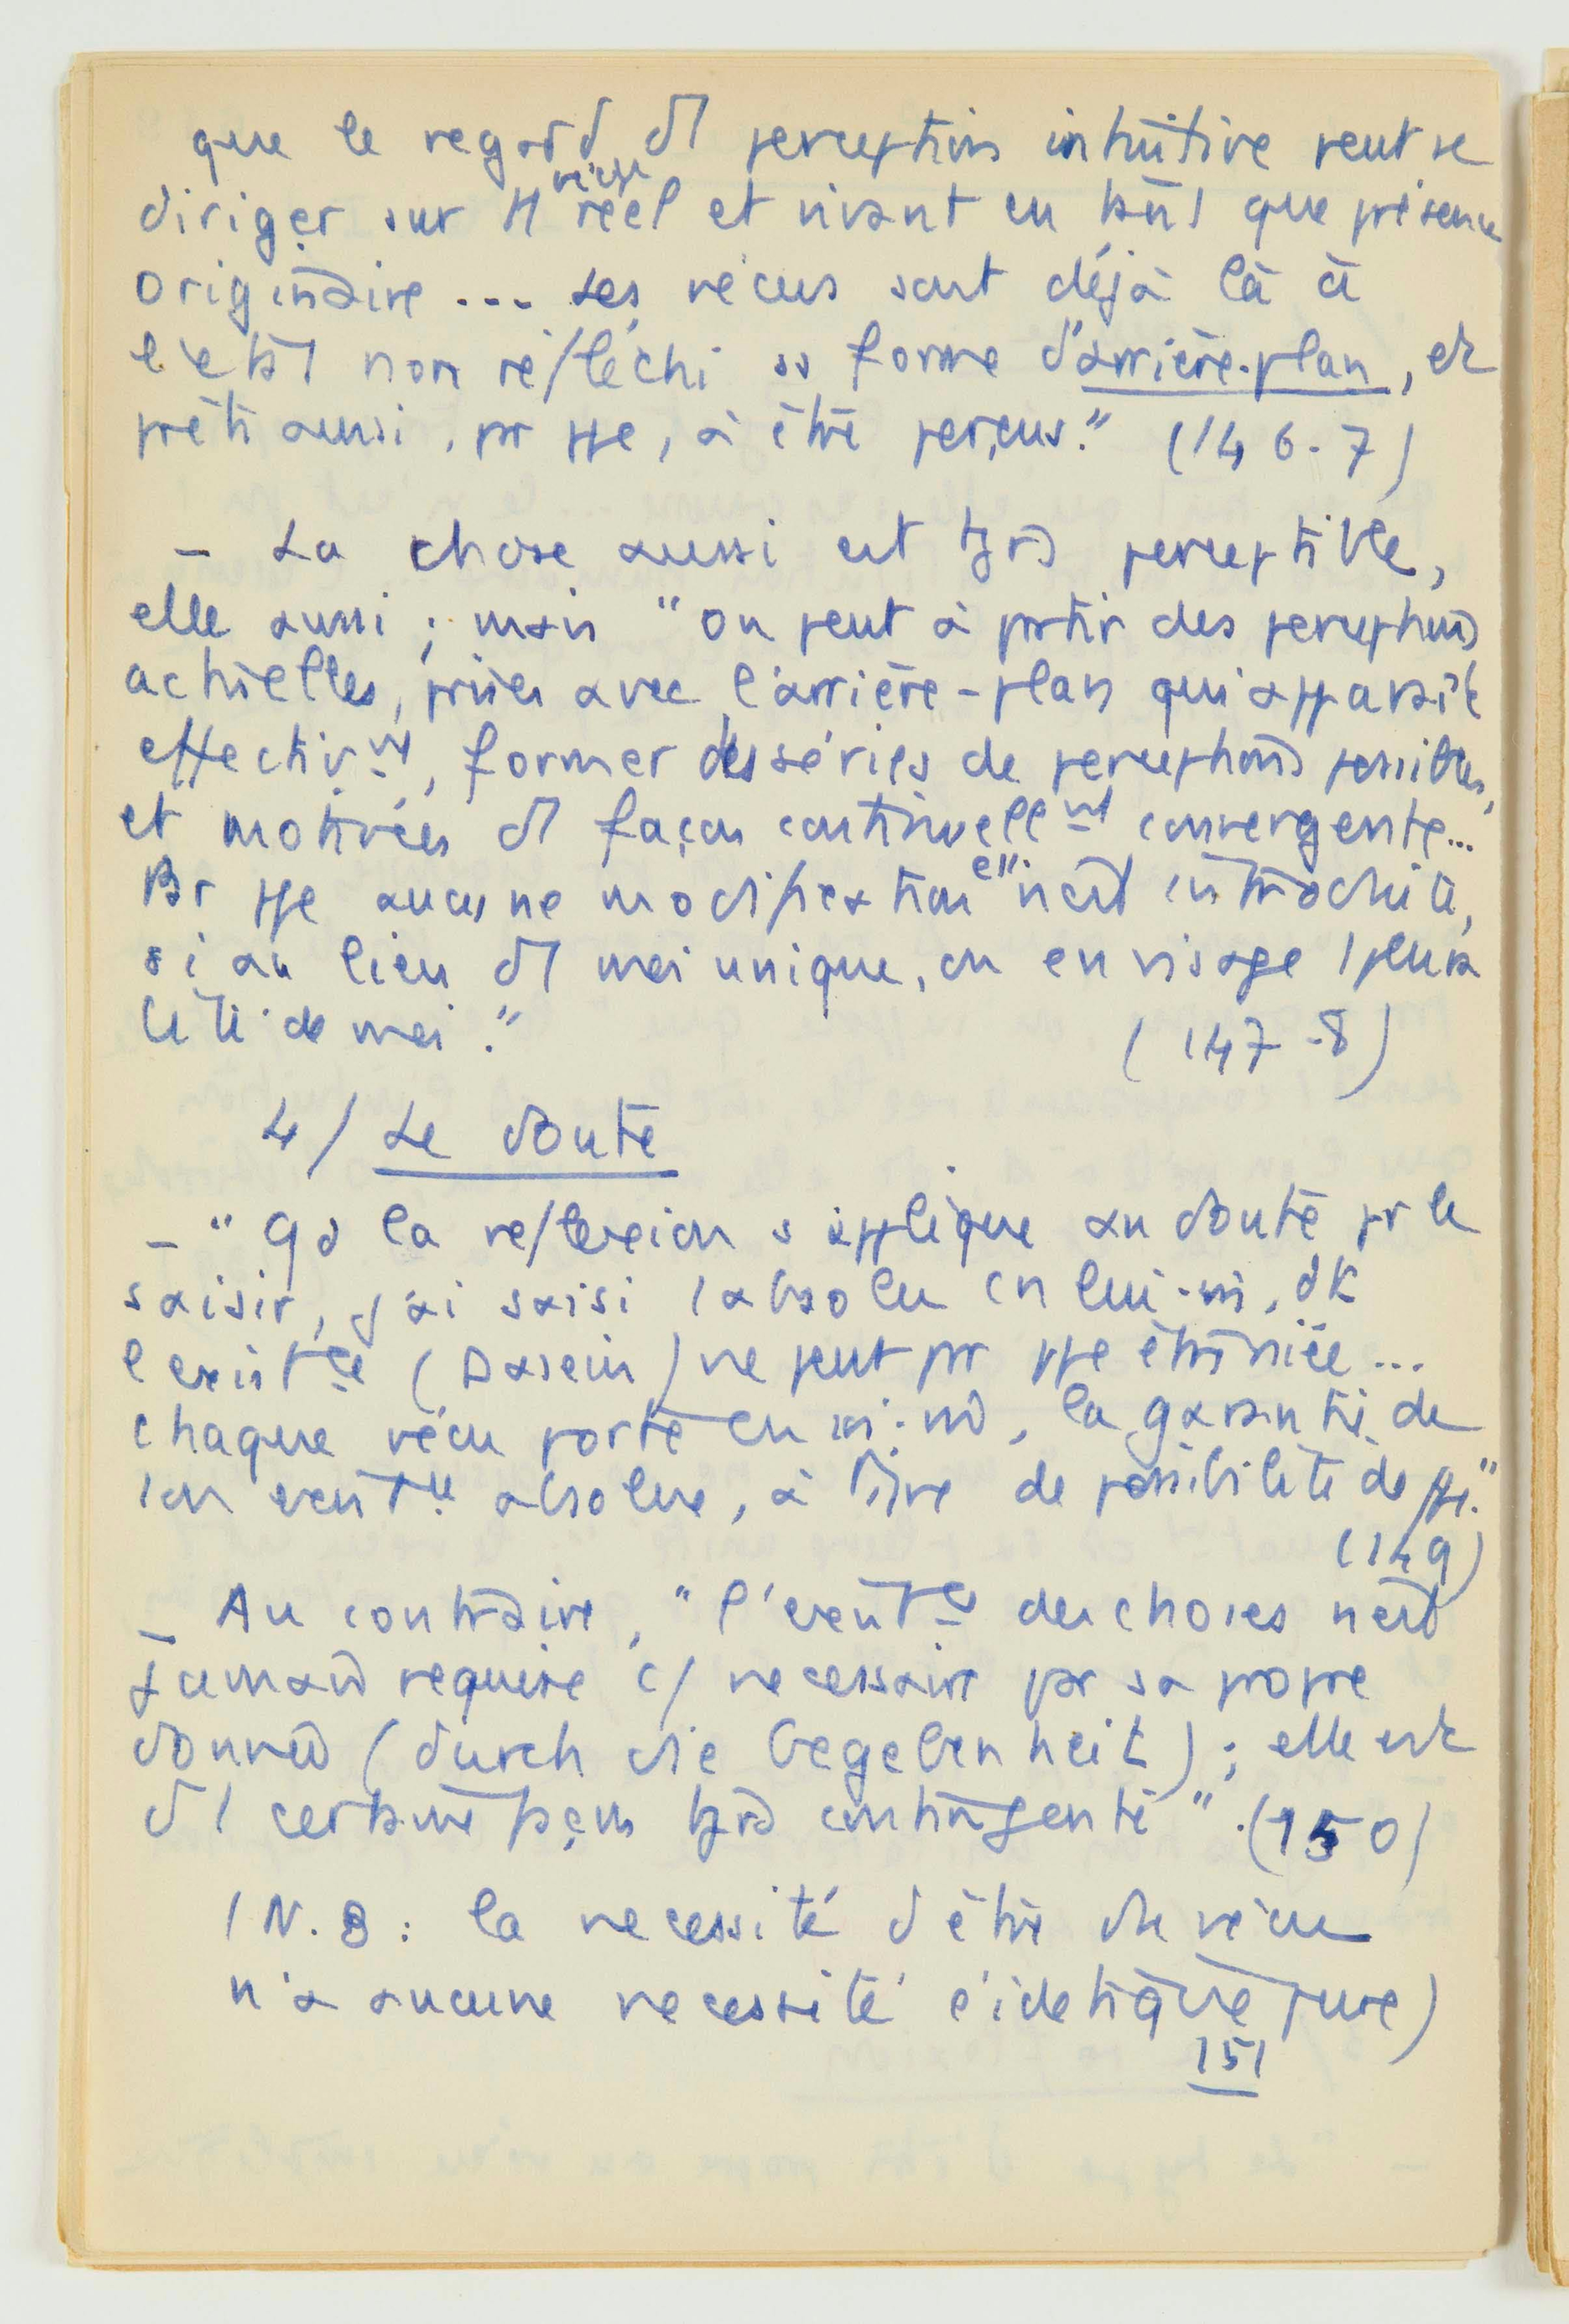 que le regard d'1 perception intuitive peut se
diriger sur tt vécu réel et vivant en tant que présence
originaire... Les vécus sont déjà là à
l'état non réfléchi ss forme d'arrière-plan, et
prêts aussi, pr ppe, à être perçus." (146-7)
– La chose aussi est tjrs perceptible,
elle aussi ; mais "on peut à partir des perceptions
actuelles, prises avec l'arrière-plan qui apparaît
effectivmt, former des séries de perceptions possibles,
et motivées d'1 façon continuellmt convergente...
Par ppe aucune modification ell. n'est introduite,
si au lieu d'1 moi unique, on envisage 1 plura
lité de moi." (147-8)
4/ Le doute
– "Qd la reflexion s'applique au doute pr le
saisir, j'ai saisi 1 absolu en lui-m, dt
l'existce (Dasein) ne peut pr ppe être niée...
chaque vécu porte en soi-m, la garantie de
son existce absolue, à titre de possibilité de ppe."
(149)
– Au contraire, "l'existce des choses n'est
jamais requise c/ necessaire par sa propre
donnée (durch die Gegebenheit) ; elle est
d'1 certaine façon tjrs contingente". (150)
(N.B : la necessité d'être du vécu
n'a aucune necessité eidétique pure)
151